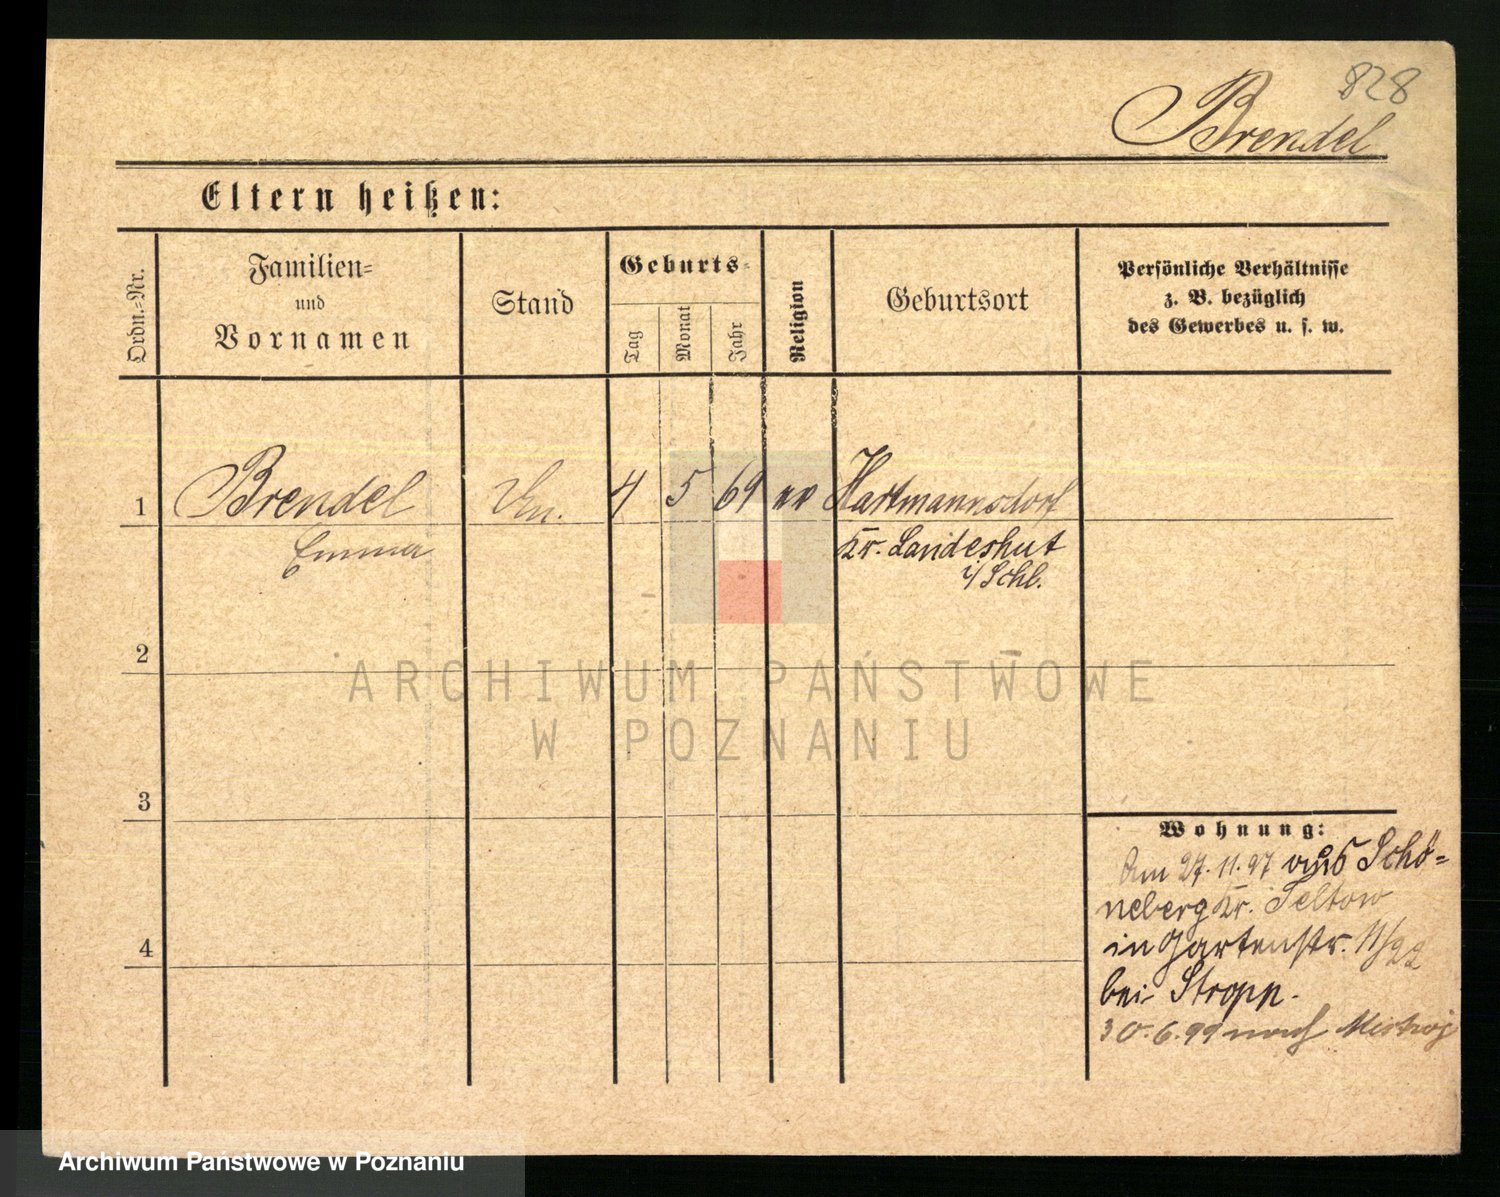 828
Brendel
Eltern heißen:
Ordn.-Nr.
Familien-
und
Vornamen
Stand
Geburts-
Tag
Monat
Jahr
Religion
Geburtsort
Persönliche Verhältnisse
z. B. bezüglich
des Gewerbes u. s. w.
1
Brendel
Emma
4
5
69
ev
Hartmannsdorf
Kr. Landeshut
i/Schl.
2
3
4
Wohnung:
Am 27.11.97 aus Schö-
neberg Kr. Teltow
in Gartenstr. 11/22
bei Stropp.
30.6.99 nach
ARCHIWUM PAŃSTWOWE
W POZNANIU
Archiwum Państwowe w Poznaniu